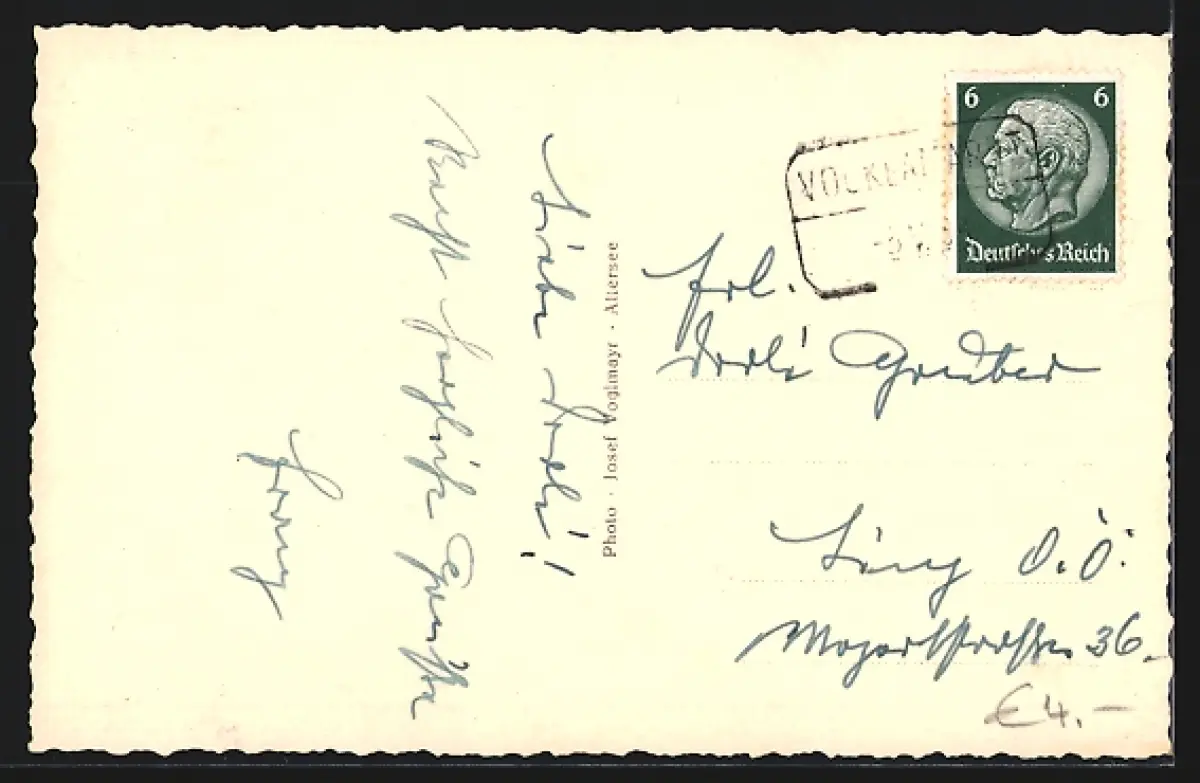 Liebe Dorli!
Recht herzliche Grüße
Franz
Photo · Josef Voglmayr · Attersee
6 6
Deutsches Reich
Frl.
Dorli Gruber
Linz O.Ö.
Mozartstrasse 36.
€ 4.-